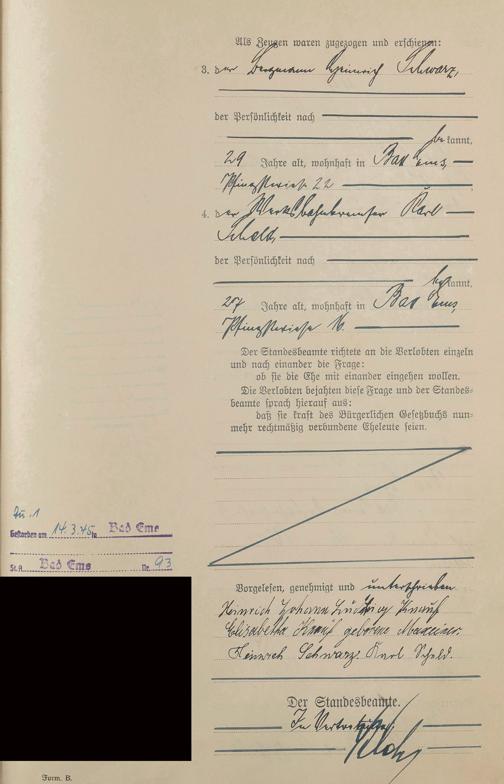 Als Zeugen waren zugezogen und erschienen:
3. der Bergmann Heinrich Schwarz,
der Persönlichkeit nach
bekannt,
29 Jahre alt, wohnhaft in Bad Ems,
Pfingstwiese 22
4. der Werksbahnbremser Karl
Scheld,
der Persönlichkeit nach
bekannt,
27 Jahre alt, wohnhaft in Bad Ems,
Pfingstwiese 16.
Der Standesbeamte richtete an die Verlobten einzeln
und nach einander die Frage:
ob sie die Ehe mit einander eingehen wollen.
Die Verlobten bejahten diese Frage und der Standes-
beamte sprach hierauf aus:
daß sie kraft des Bürgerlichen Gesetzbuchs nun-
mehr rechtmäßig verbundene Eheleute seien.
Zu 1
Gestorben am 14.3.45 in Bad Ems
St.A. Bad Ems Nr. 93
Vorgelesen, genehmigt und unterschrieben
Heinrich Johann Ludwig Knauf
Elisabetha Knauf geborene
Heinrich Schwarz. Karl Scheld.
Der Standesbeamte.
In Vertretung
Form. B.